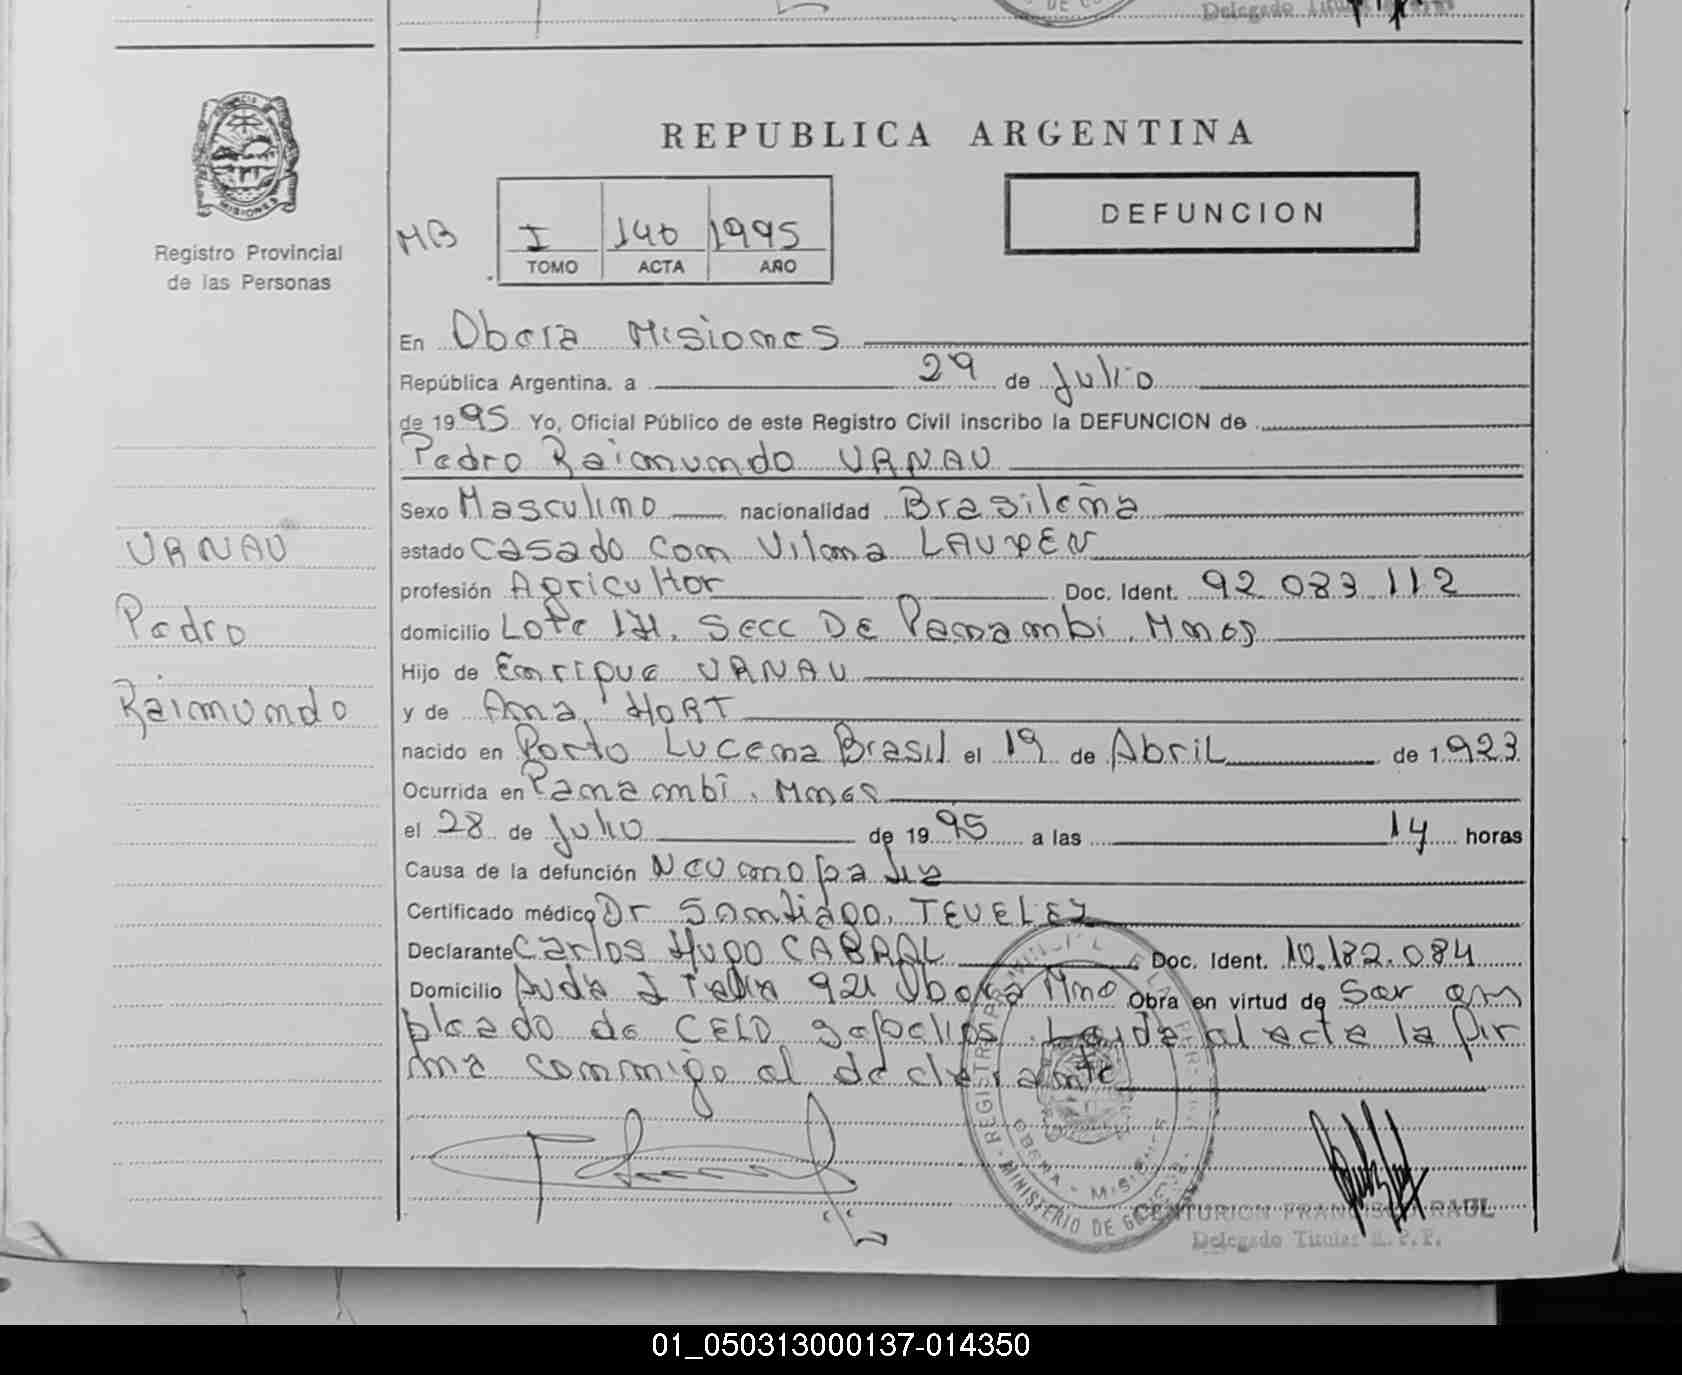 Delegado Titular
Registro Provincial
de las Personas
REPUBLICA ARGENTINA
MB
I 140 1995
TOMO ACTA AÑO
DEFUNCION
En Oberá Misiones
República Argentina. a 29 de Julio
de 1995 Yo, Oficial Público de este Registro Civil inscribo la DEFUNCION de
Pedro Raimundo URNAU
Sexo Masculino nacionalidad Brasileña
estado casado con Vilma
profesión Agricultor Doc. Ident. 92.083.112
domicilio Lote Secc De Panambi, Mnes
Hijo de Enrique URNAU
y de Ana HORT
nacido en Porto Lucena Brasil el 19 de Abril de 1923
Ocurrida en Panambi, Mnes
el 28 de Julio de 1995 a las 14 horas
Causa de la defunción Neumopatia
Certificado médico Dr Santiago
Declarante Carlos Hugo CABRAL Doc. Ident. 10.182.084
Domicilio Avda 921 Obera Mnes Obra en virtud de Ser em
pleado de CELO sepelios. Leida el acta la fir
ma conmigo el declarante
URNAU
Pedro
Raimundo
OBERA - MISIONES
MINISTERIO DE GOBIERNO
CENTURION FRANCISCO RAUL
Delegado Titular R.P.P.
01_050313000137-014350